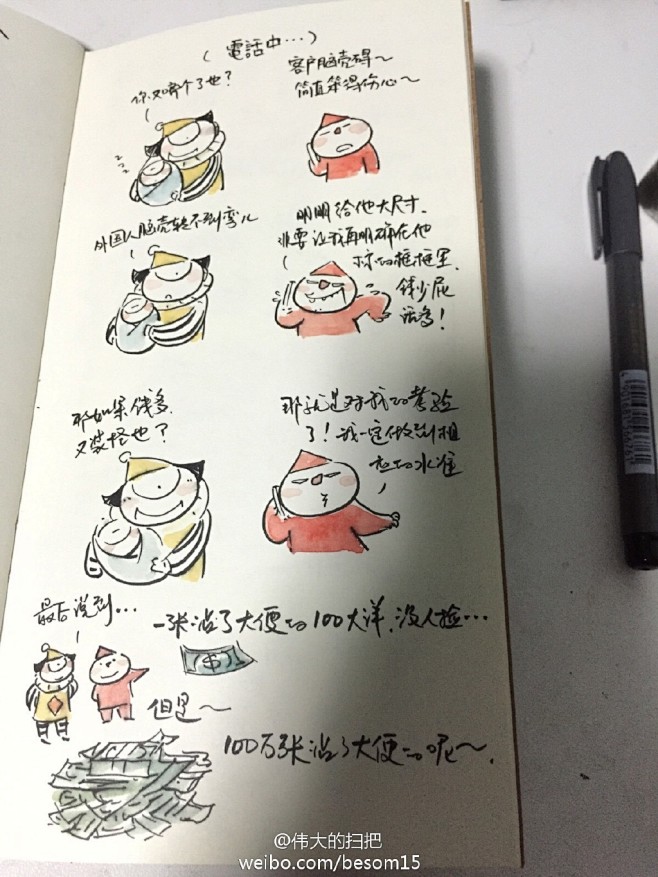 (電話中...)
你又啷个了也?
客户脑壳硬~
简直笨得伤心~
外国人脑壳转不到弯儿
明明给他大尺寸.
非要让我再明确在他
标的框框里.
钱少屁
话多!
那如果钱多.
又装怪也?
那就是对我的考验
了!我一定做到相
应的水准
最后说到...
一张沾了大便的100大洋.没人捡...
但是~
100万张沾了大便的呢~.
@伟大的扫把
weibo.com/besom15